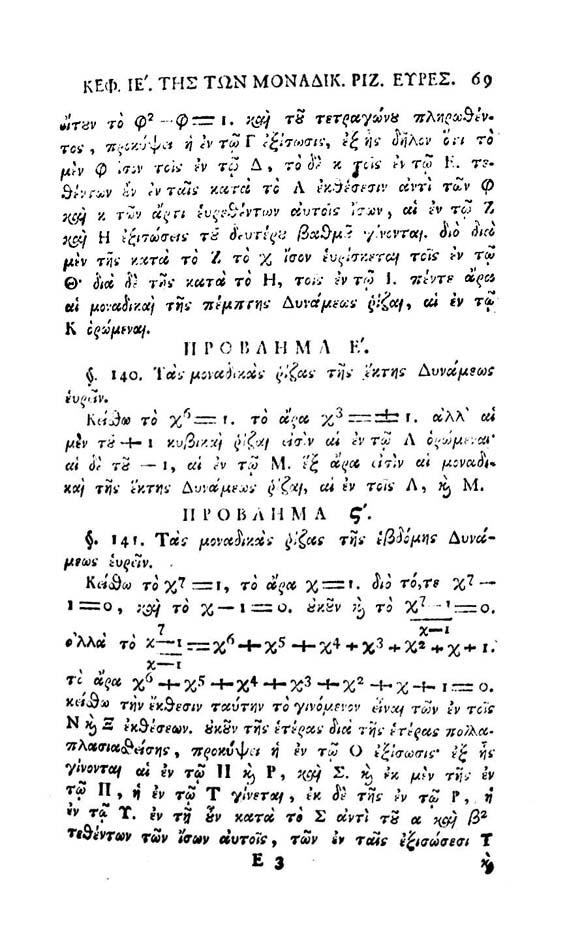 ΚΕΦ. ΙΕ΄. ΤΗΣ ΤΩΝ ΜΟΝΑΔΙΚ. ΡΙΖ. ΕΥΡΕΣ. 69
τὸ φ² — φ = 1. καὶ τοῦ τετραγώνου πληρωθέν-
τος, προκύψει ἡ ἐν τῷ Γ ἐξίσωσις, ἐξ ἧς δῆλον ὅτι τὸ
μὲν φ ἴσον τοῖς ἐν τῷ Δ, τὸ δὲ κ τοῖς ἐν τῷ Ε. τε-
θέντων ἐν ταῖς κατὰ τὸ Λ ἐκθέσεσιν ἀντὶ τῶν φ
καὶ κ τῶν ἄρτι εὑρεθέντων αὐτοῖς ἴσων, αἱ ἐν τῷ Ζ
καὶ Η ἐξισώσεις τοῦ δευτέρου βαθμοῦ γίνονται. διὸ διὰ
μὲν τῆς κατὰ τὸ Ζ τὸ χ ἴσον εὑρίσκεται τοῖς ἐν τῷ
Θ· διὰ δὲ τῆς κατὰ τὸ Η, τοῖς ἐν τῷ Ι. πέντε ἄρα
αἱ μοναδικαὶ τῆς πέμπτης Δυνάμεως ῥίζαι, αἱ ἐν τῷ
Κ ὁρώμεναι.
ΠΡΟΒΛΗΜΑ Ε΄.
§. 140. Τὰς μοναδικὰς ῥίζας τῆς ἕκτης Δυνάμεως
εὑρεῖν.
Κείσθω τὸ χ⁶ = 1. τὸ ἄρα χ³ = ± 1. ἀλλ' αἱ
μὲν τοῦ + 1 κυβικαὶ ῥίζαι εἰσὶν αἱ ἐν τῷ Λ ὁρώμεναι·
αἱ δὲ τοῦ — 1, αἱ ἐν τῷ Μ. ἓξ ἄρα εἰσὶν αἱ μοναδι-
καὶ τῆς ἕκτης Δυνάμεως ῥίζαι, αἱ ἐν τοῖς Λ, ϗ Μ.
ΠΡΟΒΛΗΜΑ ϛ΄.
§. 141. Τὰς μοναδικὰς ῥίζας τῆς ἑβδόμης Δυνά-
μεως εὑρεῖν.
Κείσθω τὸ χ⁷ = 1, τὸ ἄρα χ = 1. διὸ τό, τε χ⁷ —
1 = 0, καὶ τὸ χ — 1 = 0. οὐκοῦν ϗ τὸ χ⁷ — 1 = 0.
χ — 1
7
ἀλλὰ τὸ χ — 1 = χ⁶ + χ⁵ + χ⁴ + χ³ + χ² + χ + 1.
χ — 1
τὸ ἄρα χ⁶ + χ⁵ + χ⁴ + χ³ + χ² + χ + 1 = 0.
κείσθω τὴν ἔκθεσιν ταύτην τὸ γινόμενον εἶναι τῶν ἐν τοῖς
Ν ϗ Ξ ἐκθέσεων. οὐκοῦν τῆς ἑτέρας διὰ τῆς ἑτέρας πολλα-
πλασιασθείσης, προκύψει ἡ ἐν τῷ Ο ἐξίσωσις· ἐξ ἧς
γίνονται αἱ ἐν τῷ Π ϗ Ρ, καὶ Σ. ϗ ἐκ μὲν τῆς ἐν
τῷ Π, ἡ ἐν τῷ Τ γίνεται, ἐκ δὲ τῆς ἐν τῷ Ρ, ἡ
ἐν τῷ Υ. ἐν τῇ οὖν κατὰ τὸ Σ ἀντὶ τοῦ α καὶ β²
τεθέντων τῶν ἴσων αὐτοῖς, τῶν ἐν ταῖς ἐξισώσεσι Τ
Ε 3 ϗ